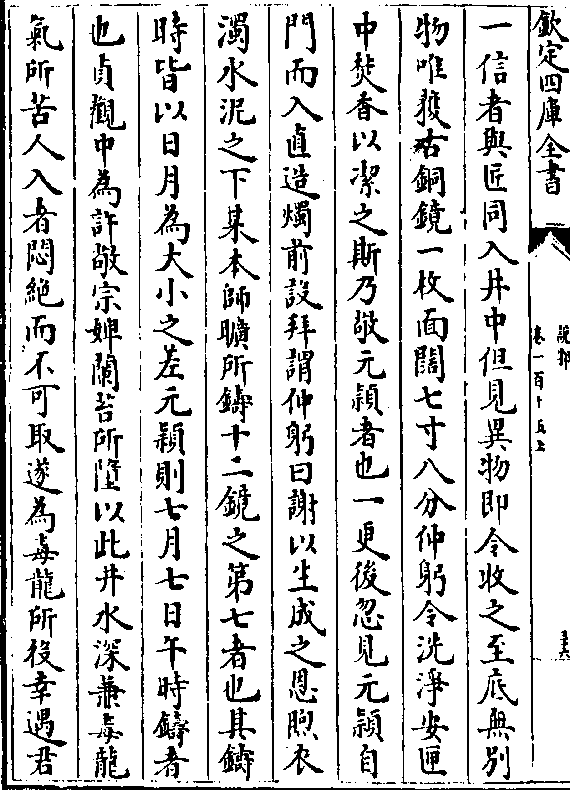 欽定四庫全書
說郛
卷一百十五上
一信者與匠同入井中但見異物即令收之至底無別
物唯獲古銅鏡一枚面闊七寸八分仲躬令洗淨安匣
中焚香以潔之斯乃敬元穎者也一更後忽見元穎自
門而入直造燭前設拜謂仲躬曰謝以生成之恩煦衣
濁水泥之下某本師曠所鑄十二鏡之第七者也其鑄
時皆以日月為大小之差元穎則七月七日午時鑄者
也貞觀中為許敬宗婢蘭苕所墮以此井水深兼毒龍
氣所苦人入者悶絶而不可取遂為毒龍所役幸遇君